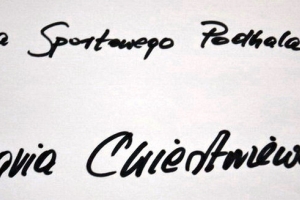 a Sportowego Podhala
ania Chiestniew